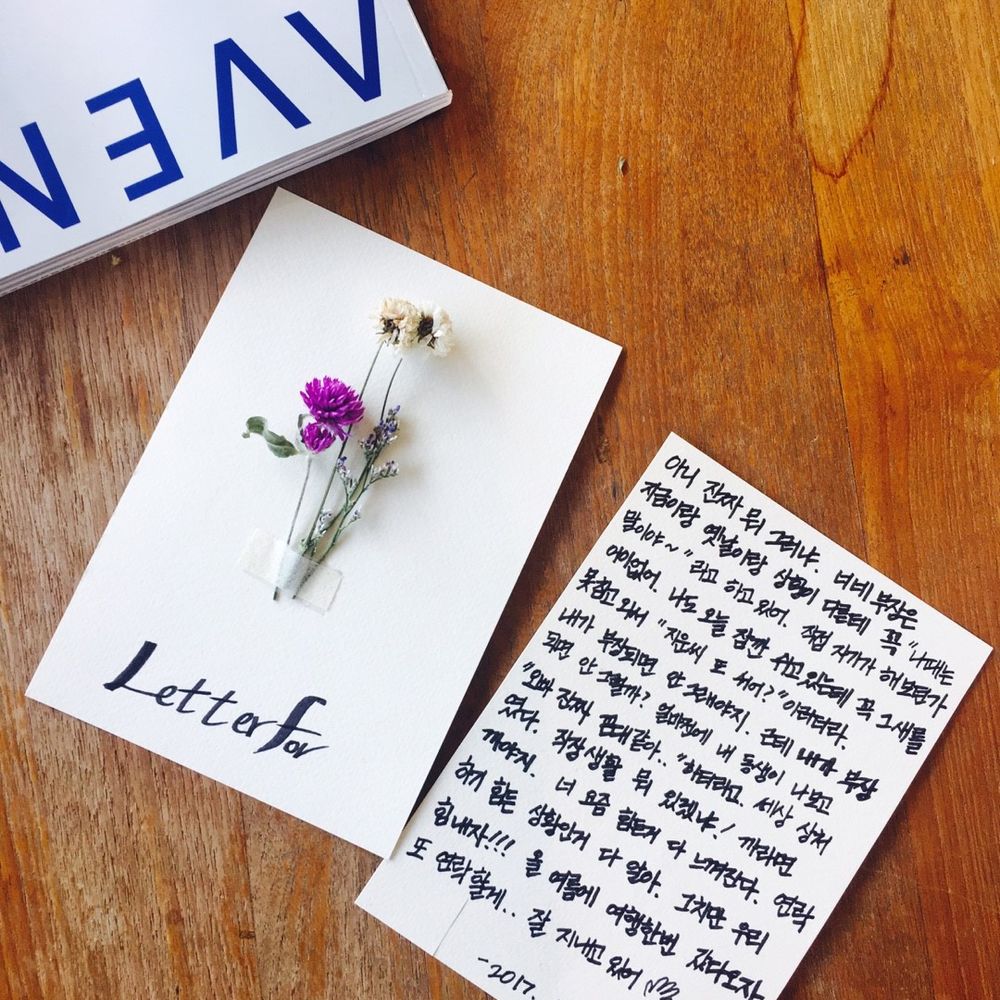 AVEN
Letter For
아니 진짜 뭐 그러냐. 너네 부장은
지금이랑 옛날이랑 상황이 다를텐데 꼭 "나때는
말이야~"라고 하고 있어. 직접 자기가 해보던가
어이없어. 나도 오늘 잠깐 쉬고있는데 꼭 그새를
못참고 와서 "지윤씨 또 쉬어?" 이러더라.
내가 부장되면 안 그래야지. 근데 내가 부장
되면 안 그럴까? 얼마전에 내 동생이 나보고
"오빠 진짜 꼰대같아.." 하더라고. 세상 상처
였다. 직장생활 뭐 있겠냐! 까라면
까야지. 너 요즘 힘든거 다 느껴진다. 연락
하기 힘든 상황인거 다 알아. 그치만 우리
힘내자!!! 올 여름에 여행한번 갔다오자
또 연락할게.. 잘 지내고 있어
-2017.